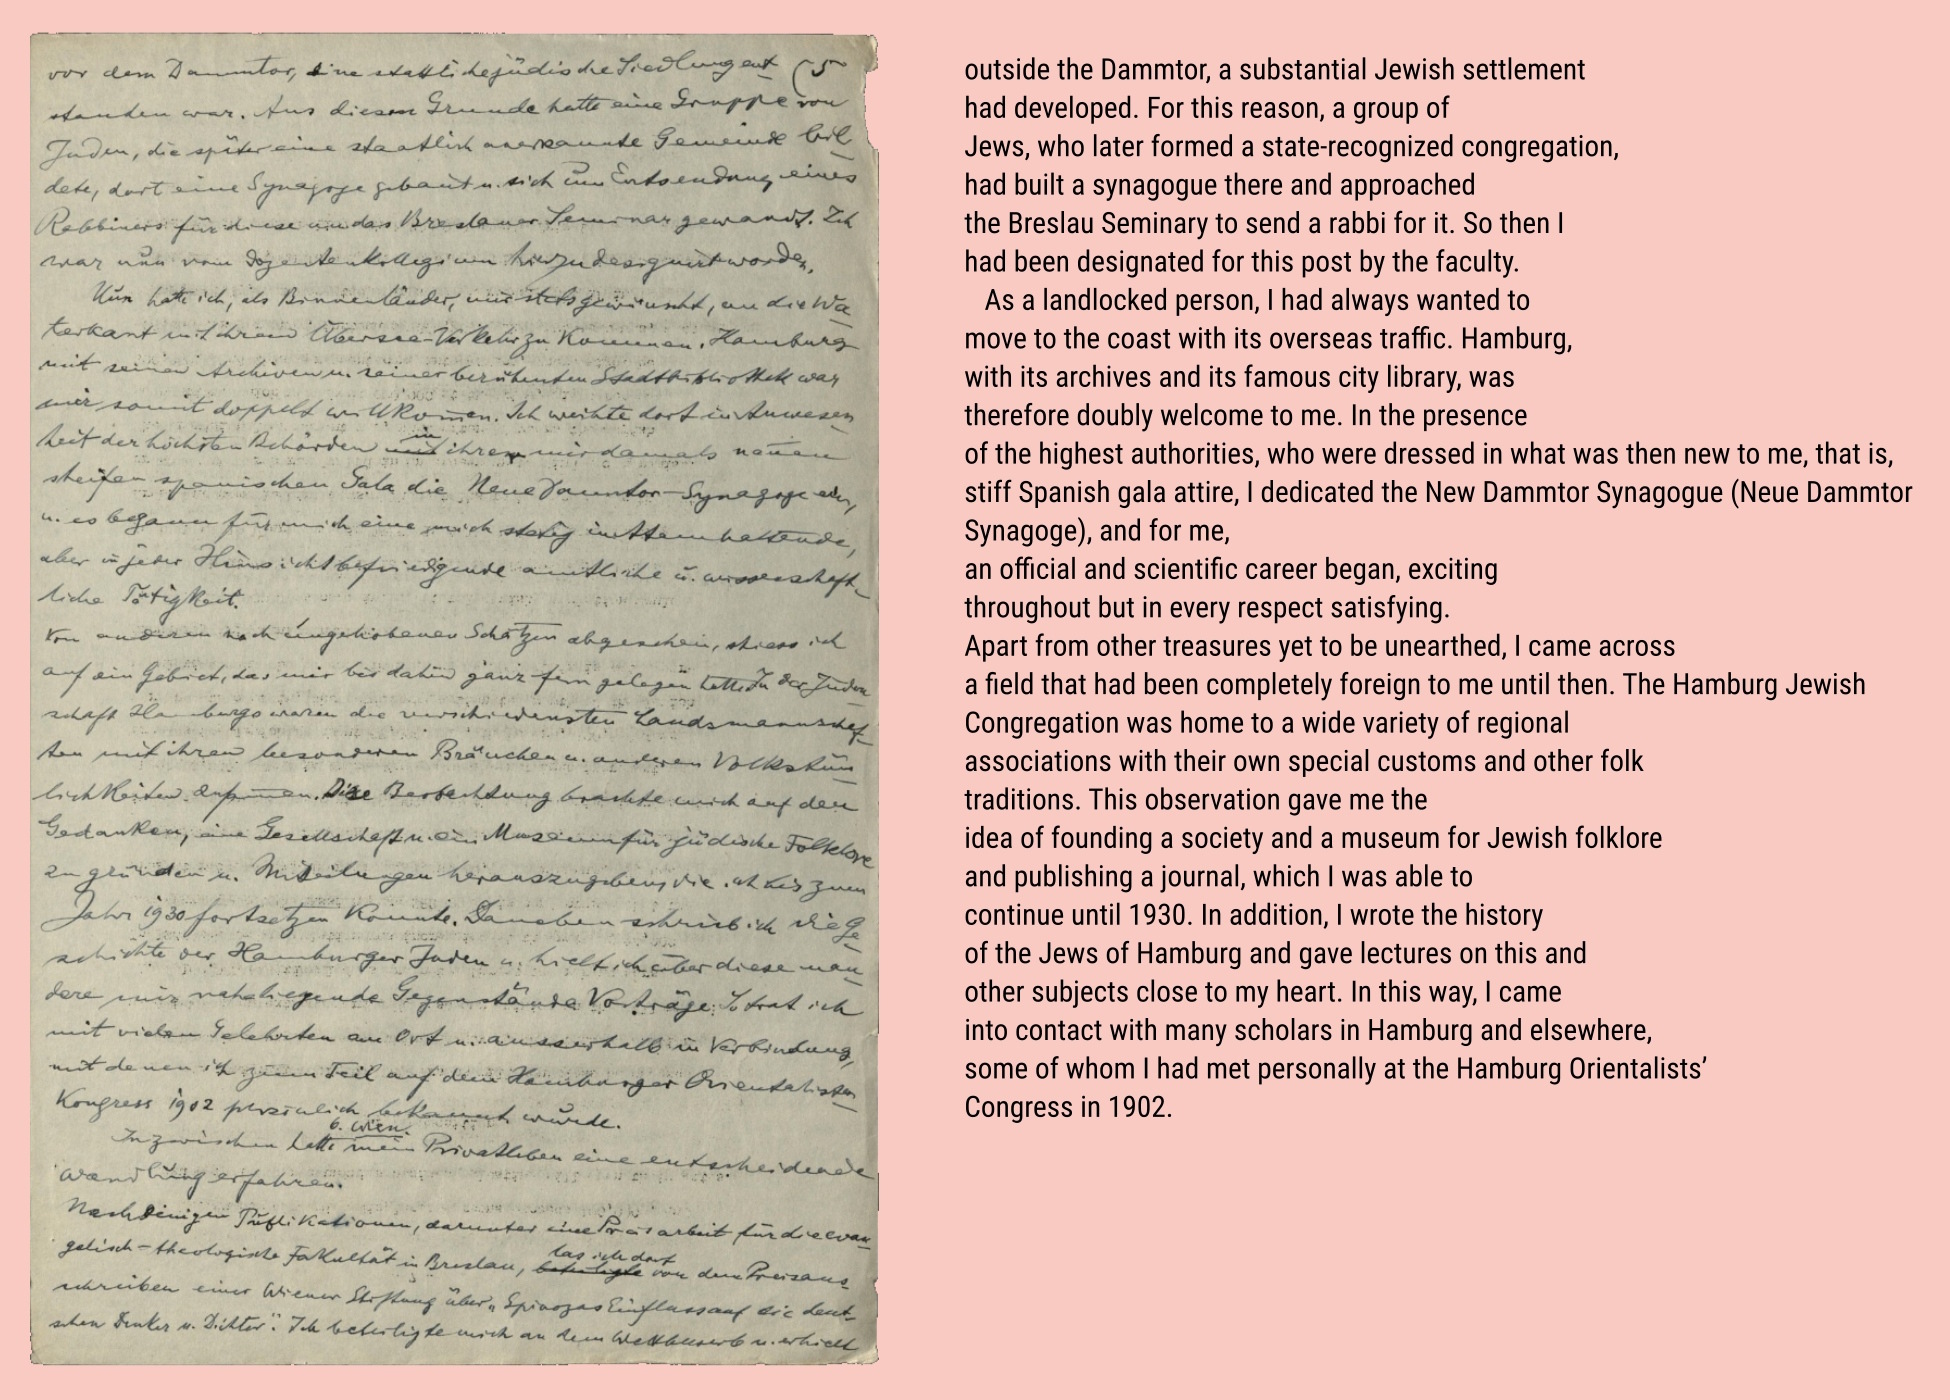 vor dem Dammtor, eine stattliche jüdische Siedlung ent (5
standen war. Aus diesem Grunde hatte eine Gruppe von
Juden, die später eine staatlich anerkannte Gemeinde bil-
dete, dort eine Synagoge gebaut u. sich um Entsendung eines
Rabbiners für diese an das Breslauer Seminar gewandt. Ich
war nun vom Dozentenkollegium hierzu designiert worden.
Nun hatte ich, als Binnenländer, mir stets gewünscht, an die Wa-
terkant mit ihrem Übersee-Verkehr zu kommen. Hamburg
mit seinen Archiven u. seiner berühmten Stadtbibliothek war
mir somit doppelt willkommen. Ich weihte dort in Anwesen-
heit der höchsten Behörden in ihrer mir damals neuen
steifen spanischen Gala die Neue Dammtor-Synagoge ein,
u. es begann für mich eine mich stetig in Atem haltende,
aber in jeder Hinsicht befriedigende amtliche u. wissenschaft-
liche Tätigkeit.
Von anderen noch ungehobenen Schätzen abgesehen, stiess ich
auf ein Gebiet, das mir bis dahin ganz fern gelegen hatte. In der Juden
schaft Hamburgs waren die verschiedensten Landsmannschaf-
ten mit ihren besonderen Bräuchen u. anderen Volkstüm-
lichkeiten Diese Beobachtung brachte mich auf den
Gedanken, eine Gesellschaft u. ein Museum für jüdische Folklore
zu gründen u. Mitteilungen herauszugeben, die ich bis zum
Jahre 1930 fortsetzen konnte. Daneben schrieb ich die Ge-
schichte der Hamburger Juden u. hielt ich über diese u. an-
dere mir naheliegende Gegenstände Vorträge. So trat ich
mit vielen Gelehrten am Ort u. ausserhalb in Verbindung,
mit denen ich zum Teil auf dem Hamburger Orientalisten-
Kongress 1902 persönlich bekannt wurde.
6. Wien.
Inzwischen hatte mein Privatleben eine entscheidende
Wandlung erfahren.
Nach einigen Publikationen, darunter eine Preisarbeit für die evan-
gelisch-theologische Fakultät in Breslau, beteiligte las ich dort von dem Preisaus-
schreiben einer Wiener Stiftung über „Spinozas Einfluss auf die deut-
schen Denker u. Dichter". Ich beteiligte mich an dem Wettbewerb u. erhielt
outside the Dammtor, a substantial Jewish settlement
had developed. For this reason, a group of
Jews, who later formed a state-recognized congregation,
had built a synagogue there and approached
the Breslau Seminary to send a rabbi for it. So then I
had been designated for this post by the faculty.
As a landlocked person, I had always wanted to
move to the coast with its overseas traffic. Hamburg,
with its archives and its famous city library, was
therefore doubly welcome to me. In the presence
of the highest authorities, who were dressed in what was then new to me, that is,
stiff Spanish gala attire, I dedicated the New Dammtor Synagogue (Neue Dammtor
Synagoge), and for me,
an official and scientific career began, exciting
throughout but in every respect satisfying.
Apart from other treasures yet to be unearthed, I came across
a field that had been completely foreign to me until then. The Hamburg Jewish
Congregation was home to a wide variety of regional
associations with their own special customs and other folk
traditions. This observation gave me the
idea of founding a society and a museum for Jewish folklore
and publishing a journal, which I was able to
continue until 1930. In addition, I wrote the history
of the Jews of Hamburg and gave lectures on this and
other subjects close to my heart. In this way, I came
into contact with many scholars in Hamburg and elsewhere,
some of whom I had met personally at the Hamburg Orientalists’
Congress in 1902.